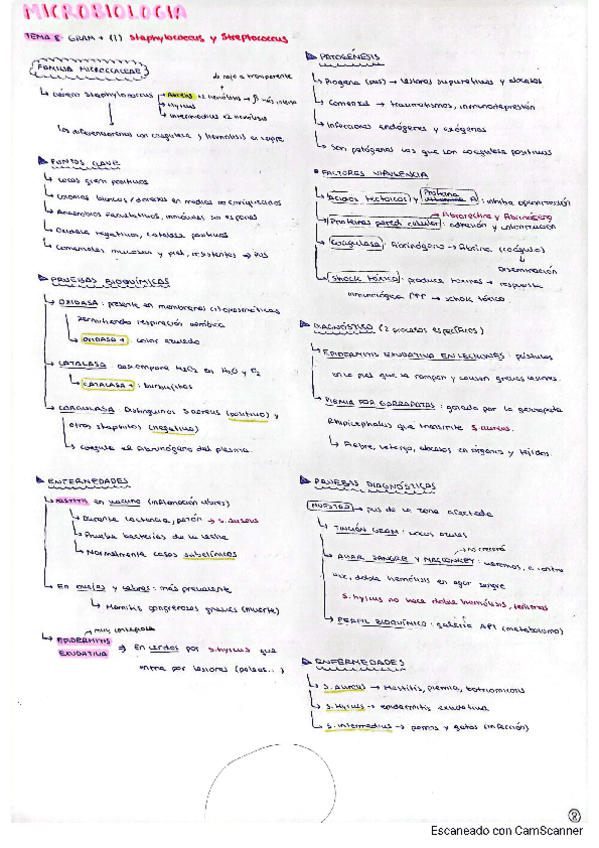 MICROBIOLOGÍA
TEMA 8: GRAM + (I) Staphylococcus y Streptococcus
FAMILIA MICROCCACEAE
de rojo a transparente
Género Staphylococcus
Aureus
más intensa
Hyicus
Intermedius
Los diferenciaremos con coagulasa y hemólisis
PUNTOS CLAVE
Cocos gram positivos
Colonias blancas/doradas en medios no enriquecidos
Anaerobios facultativos, inmóviles sin esporas
Oxidasa negativos, catalasa positivos
Comensales mucosas y piel, resistentes → pus
PRUEBAS BIOQUÍMICAS
OXIDASA: presente en membranas citoplasmáticas
permitiendo respiración aerobica
OXIDASA +: color azulado
CATALASA: descompone H2O2 en H2O y O2
CATALASA +: burbujitas
COAGULASA: Distinguimos S. aureus (positivo) y
otros staphilos (negativo)
coagula el fibrinógeno del plasma.
ENFERMEDADES
MASTITIS en vacuno (inflamación ubres)
Durante lactancia, patrón → S. aureus
Prueba bacterias de la leche
Normalmente casos subclínicos
En ovejas y cabras: más prevalente
Mamitis gangrenosas graves (muerte)
muy contagiosa
EPIDERMITIS
EXUDATIVA ⇒ En cerdos por S. hyicus que
entra por lesiones (peleas...)
PATOGÉNESIS
Piógena (pus) → lesiones supurativas y abscesos
Comensal → traumatismos, inmunodepresión
Infecciones endógenas y exógenas
Son patógenas las que son coagulasa positivas
FACTORES VIRULENCIA
Ácidos teicoicos y Proteína A: inhibe opsonización
Proteínas pared celular: adhesión y colonización
Coagulasa: Fibrinógeno → fibrina (coágulo)
Diseminación
Shock tóxico: produce toxinas → respuesta
inmunológica ↑↑↑ → shock tóxico.
DIAGNÓSTICO (2 procesos específicos)
EPIDERMITIS EXUDATIVA EN LECHONES: pústulas
en la piel que se rompen y causan graves lesiones.
PIEMIA POR GARRAPATAS: causada por la garrapata
Rhipicephalus que transmite S. aureus.
Fiebre, letargo, abscesos en órganos y tejidos.
PRUEBAS DIAGNÓSTICAS
MUESTRA → pus de la zona afectada
TINCIÓN GRAM: cocos azules
no crecerá
AGAR SANGRE Y MACCONKEY: veremos, a contra
luz, doble hemólisis en agar sangre
S. hyicus no hace doble hemólisis,
PERFIL BIOQUÍMICO: galería API (metabolismo)
ENFERMEDADES
S. Aureus → Mastitis, piemia, botriomicosis
S. Hyicus → epidermitis exudativa
S. intermedius → perros y gatos (infección)
8
Escaneado con CamScanner